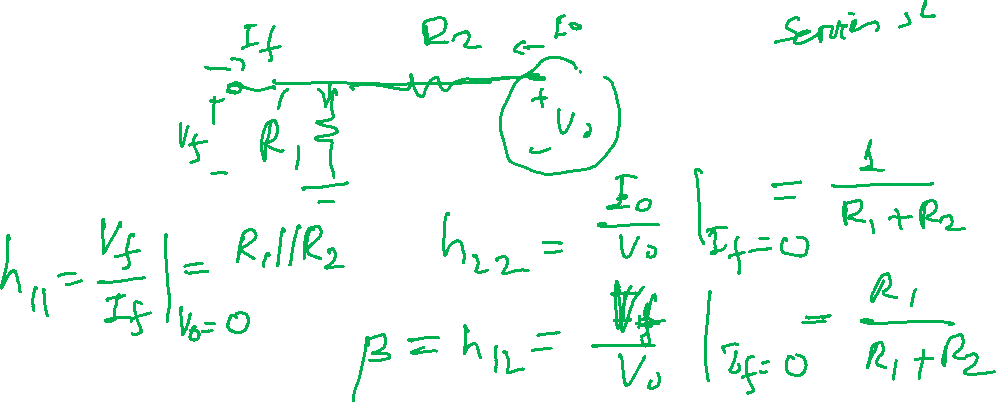 I_f R_2 I_o
V_f + - R_1 + V_o -
h_11 = V_f / I_f | V_o=0 = R_1//R_2
h_22 = I_o / V_o | I_f=0 = 1 / (R_1+R_2)
β = h_12 = V_f / V_o | I_f=0 = R_1 / (R_1+R_2)